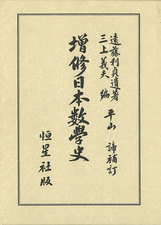 遠藤利貞遺著
三上義夫 編
平山 諦補訂
増修日本數學史
恒星社版